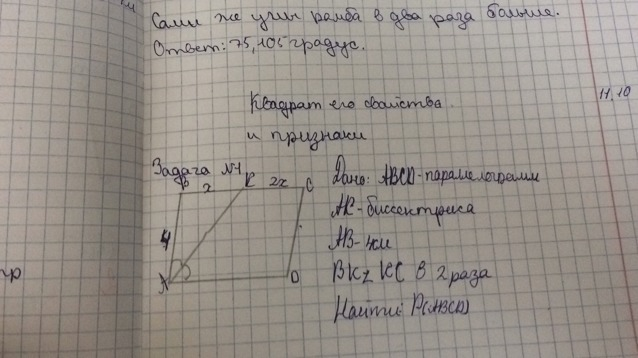 Сами же углы ромба в два раза больше.
Ответ: 75, 105 градус.
11.10
Квадрат его свойства
и признаки
Задача №1
B x K 2x C
4
A D
Дано: ABCD-параллелограмм
AK-биссектриса
AB-4см
BK KC в 2 раза
Найти: P(ABCD)